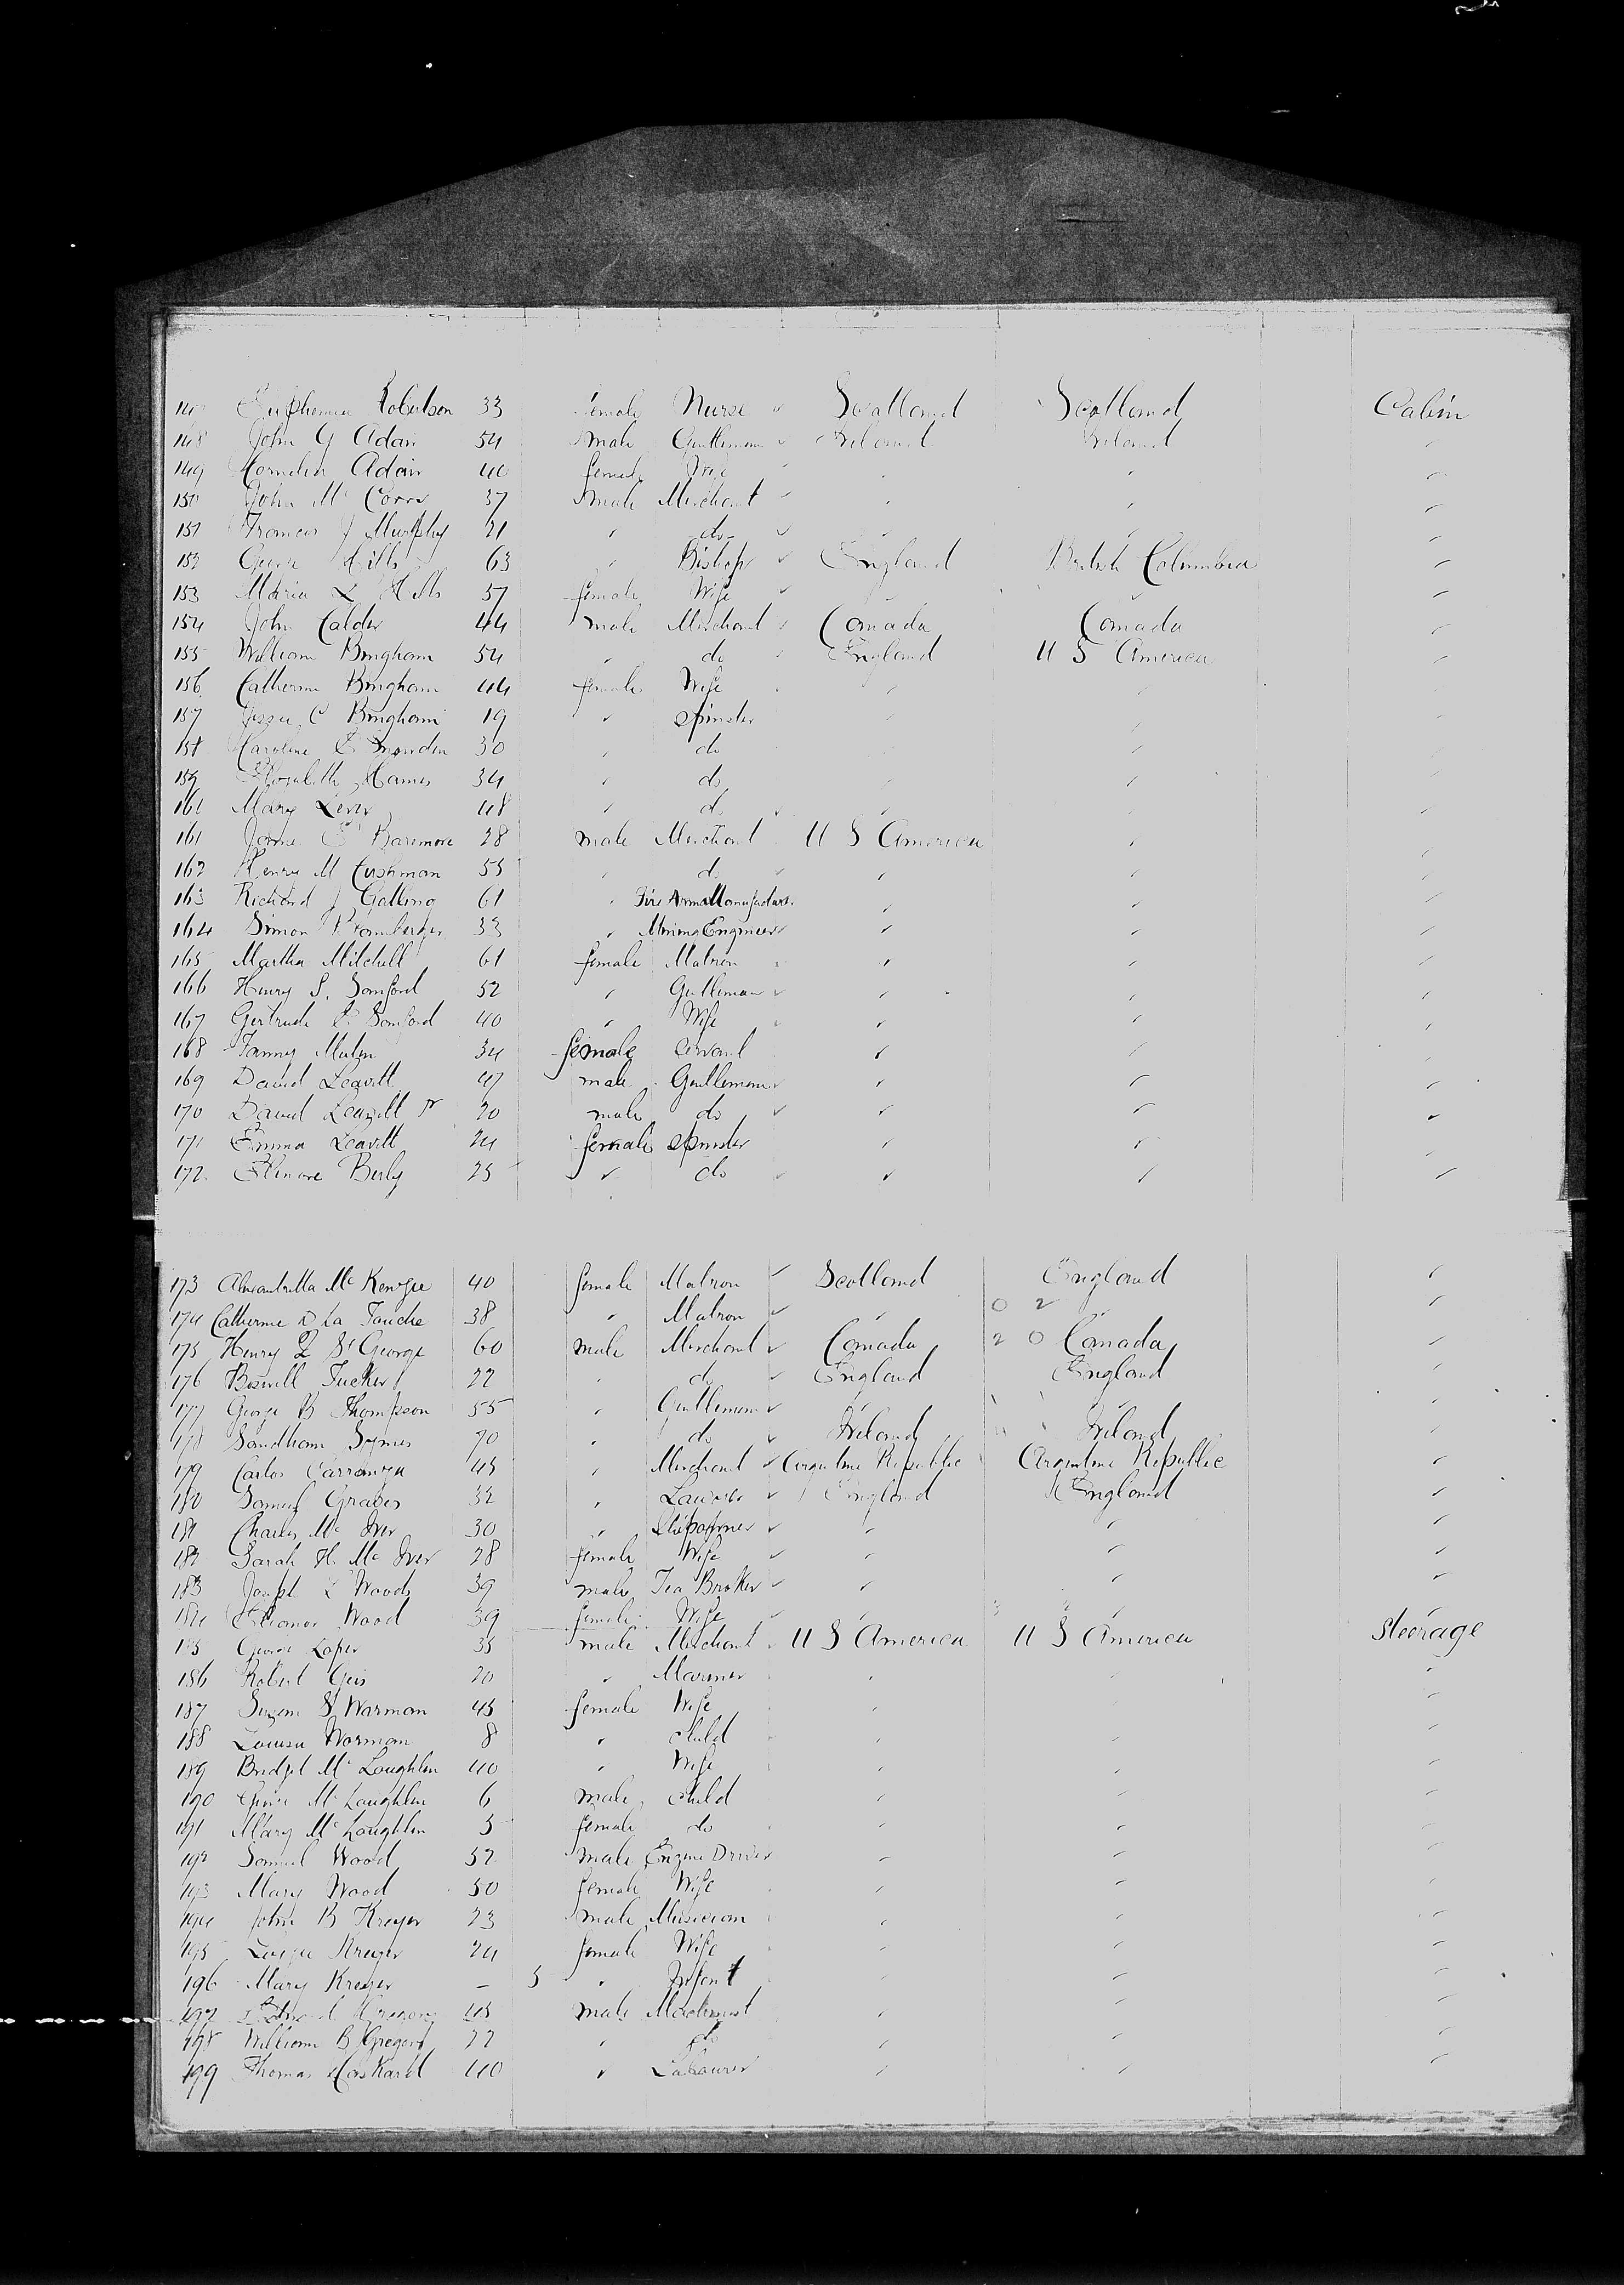 147 Euphemia Robertson 33 female Nurse Scotland Scotland Cabin
148 John G Adair 54 male Gentleman Ireland Ireland "
149 Cornelia Adair 40 female Wife " " "
150 John Mc 37 male Merchant " " "
151 Francis J Murphy 21 " do " " "
152 George Hills 63 " Bishop England British Columbia "
153 Maria L Hills 57 female Wife "
154 John Calder 44 male Merchant Canada Canada "
155 William Bingham 54 " do England U S America "
156 Catherine Bingham 44 female Wife " " "
157 Jessie C Bingham 19 " Spinster " " "
158 Caroline E 30 " do " " "
159 Elizabeth Hames 34 " do " " "
161 Mary 48 " do " " "
161 E Baremore 28 male Merchant U S America " "
162 Henry M Cushman 55 " do " " "
163 Richard J Gatling 61 " Fire Arms Manufactur. " " "
164 Simon Bamberger 33 " Mining Engineer " " "
165 Martha Mitchell 61 female Matron " " "
166 Henry S. Sanford 52 " Gentleman " " "
167 Gertrude E Sanford 40 " Wife " " "
168 Fanny 34 female Servant " " "
169 David Leavitt 47 male Gentleman " " "
170 David Leavitt Jr 20 male do " " "
171 Emma Leavitt 24 female Spinster " " "
172 Elenore 25 " do " " "
173 Mc Kenzie 40 female Matron Scotland England "
174 Catherine D La Touche 38 " Matron " 0 2 " "
175 Henry Q St George 60 male Merchant Canada 2 0 Canada "
176 Boswell Tucker 22 " do England England "
177 George B Thompson 55 " Gentleman " " "
178 Sandham Symes 70 " do Ireland Ireland "
179 Carlos Carranza 45 " Merchant Argentine Republic Argentine Republic "
180 Samuel Graves 32 " Lawyer England England "
181 Charles Mc Iver 30 " Shipowner " " "
182 Sarah H Mc Iver 28 female Wife " " "
183 Joseph L Wood 39 male Tea Broker " " "
184 Eleanor Wood 39 female Wife " "
185 George Loper 35 male Merchant U S America U S America Steerage
186 Robert 20 " Mariner " " "
187 Susan S Warman 45 female Wife " " "
188 Louisa Warman 8 " child " " "
189 Bridget Mc Loughlin 40 " Wife " " "
190 Mc Loughlin 6 male child " " "
191 Mary Mc Loughlin 5 female do " " "
192 Samuel Wood 52 male Engine Driver " " "
193 Mary Wood 50 female Wife " " "
194 John B Kreyer 23 male Musician " " "
195 Kreyer 24 female Wife " " "
196 Mary Kreyer - 5 " Infant " " "
197 Gregory 45 male Machinist " " "
198 William B Gregory 22 " do " " "
199 Thomas 40 " Labourer " " "